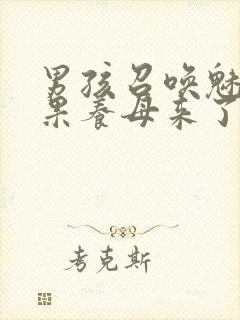 男孩召唤魅
果养母来了
考克斯